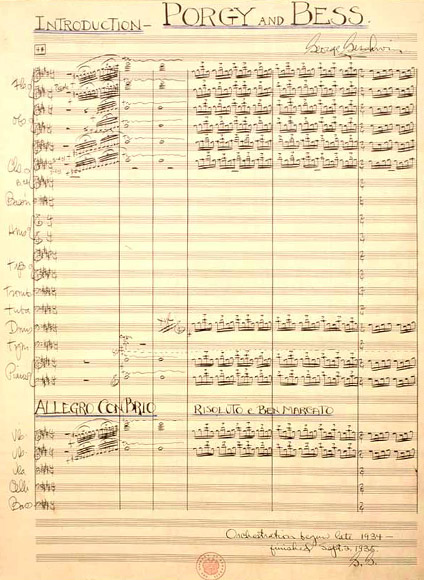 INTRODUCTION - PORGY AND BESS.
George Gershwin
Ob
Bsoon
Tromb
Tuba
Piano
ALLEGRO CON BRIO RISOLUTO E BEN MARCATO
Vla
Celli
Orchestration begun late 1934 -
finished Sept 2, 1935.
G.G.